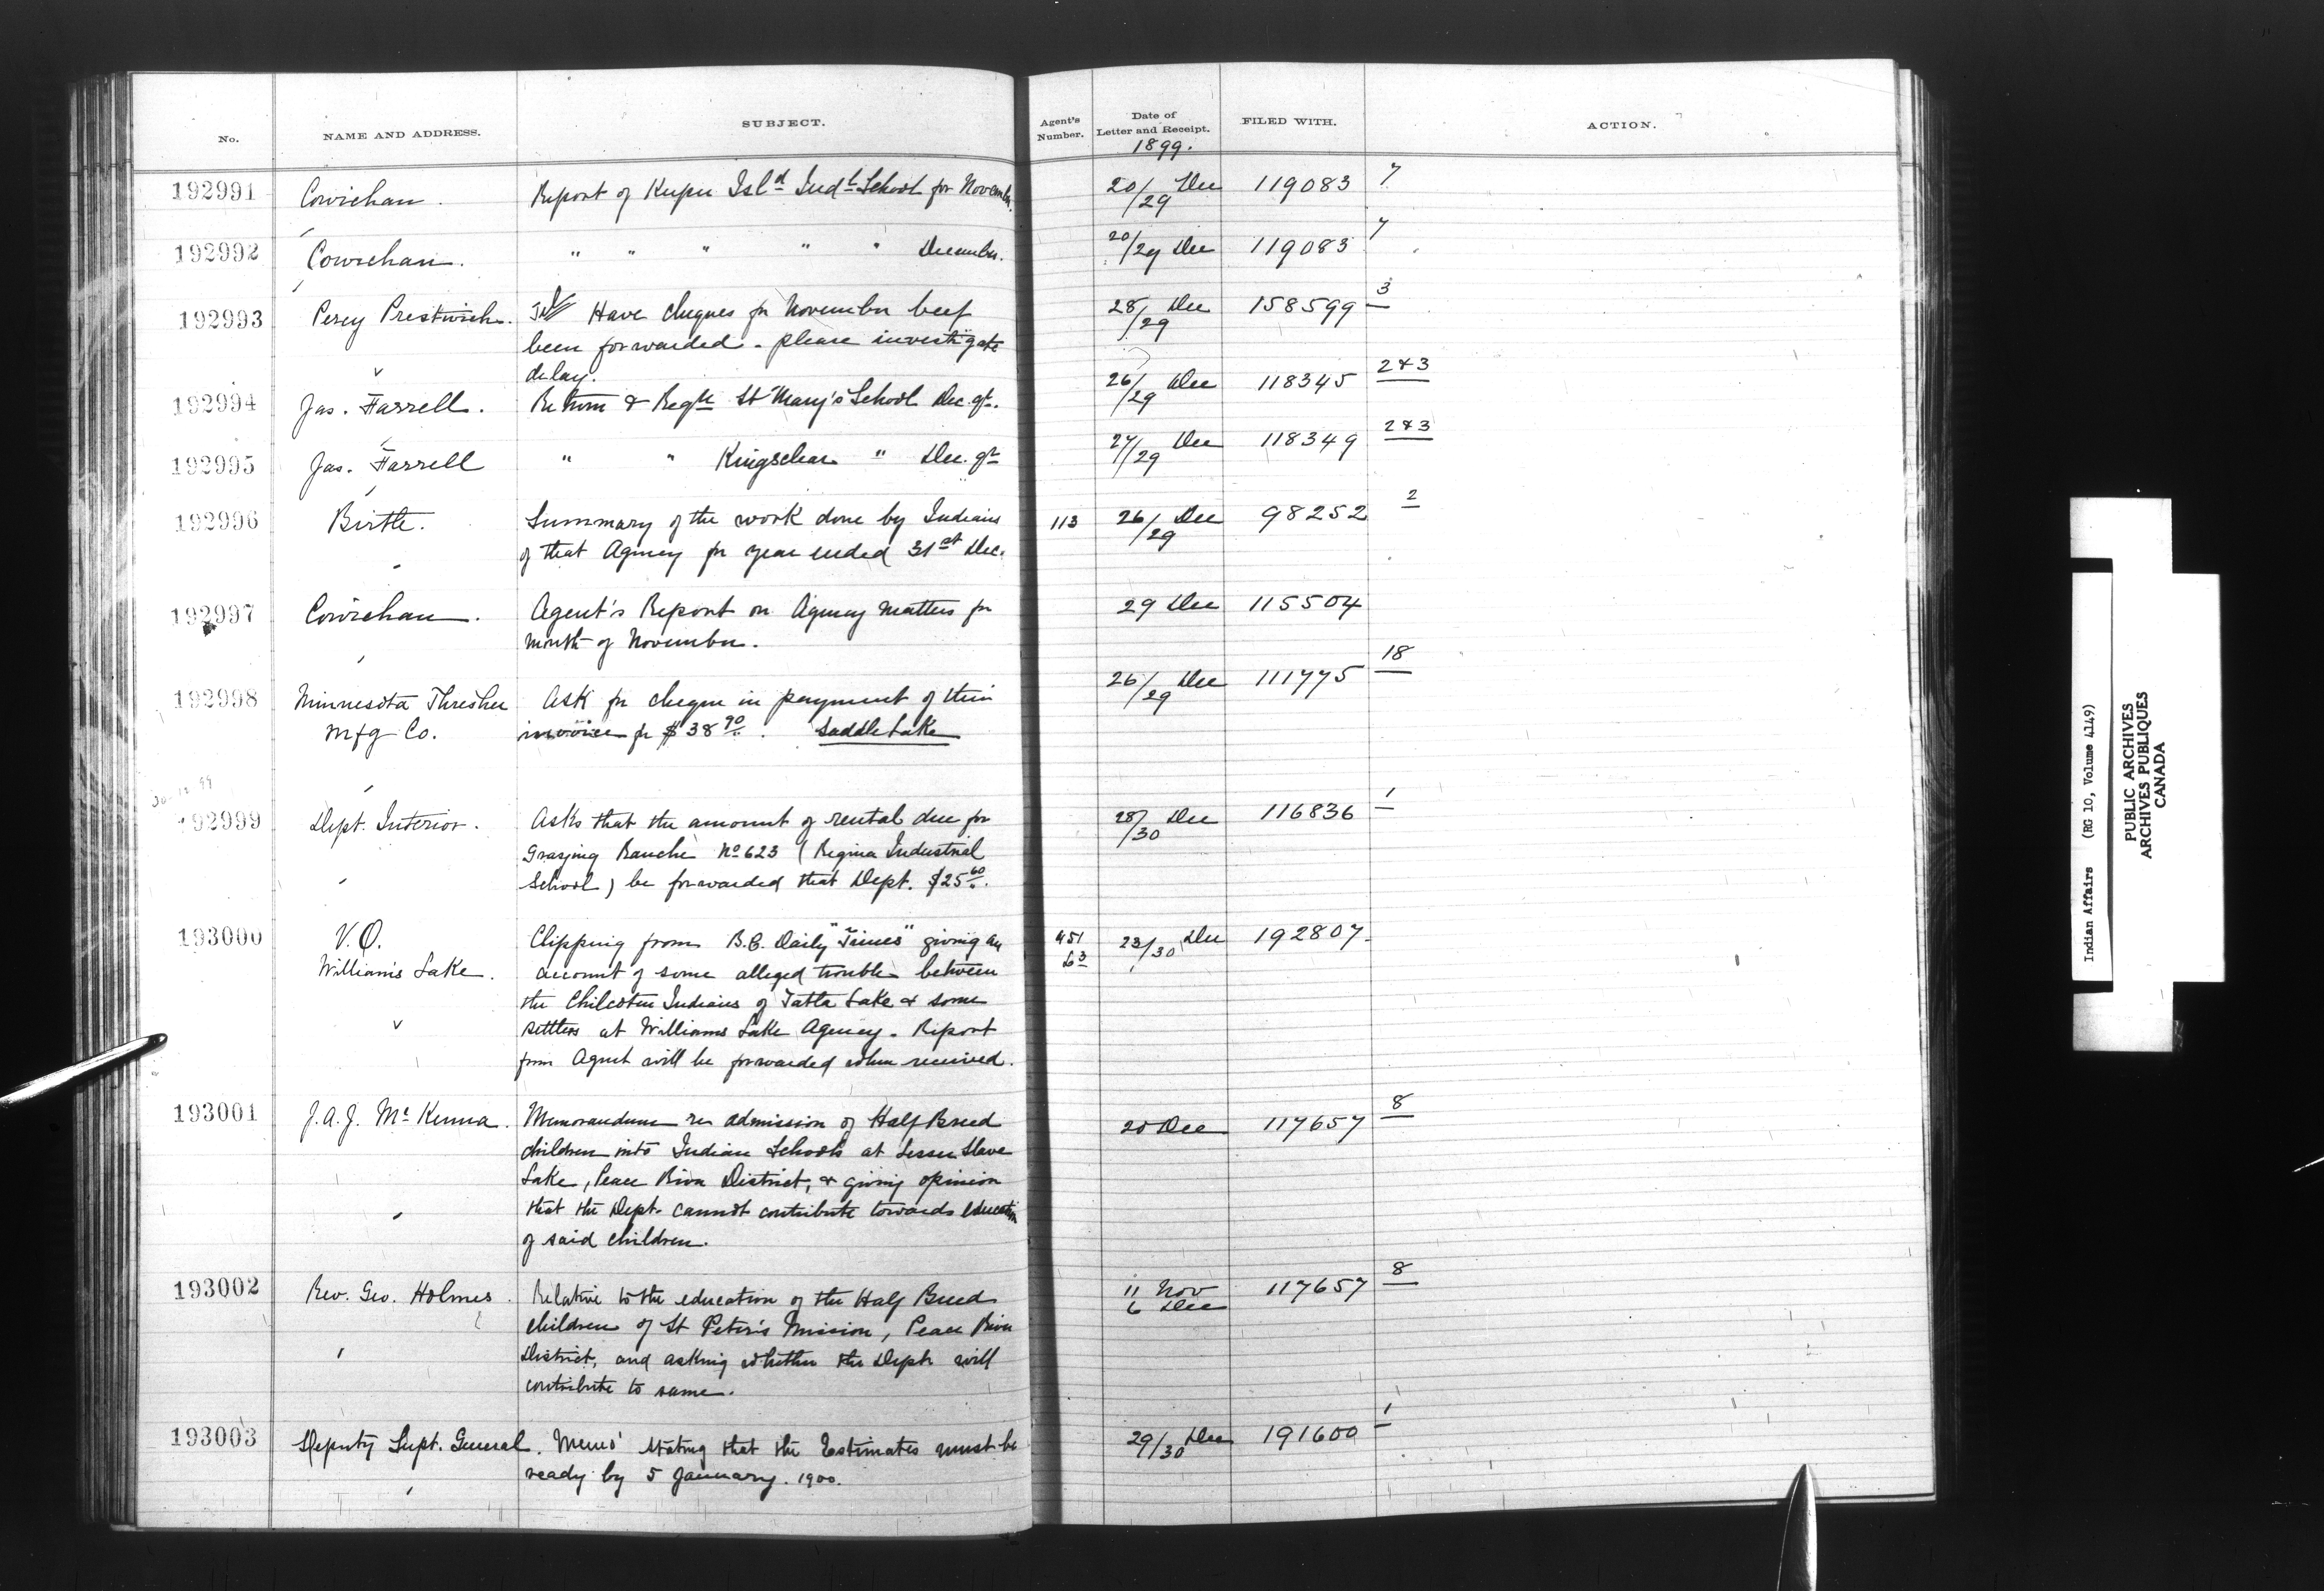 No. NAME AND ADDRESS. SUBJECT. Agent's Number. Date of Letter and Receipt. FILED WITH. ACTION.
1899.
192991 Cowichan. Report of Kuper Isl^d Ind^l School for November. 20/29 Dec 119083 7
192992 Cowichan. " " " " " December. 20/29 Dec 119083 7
192993 Percy Prestwich. Have cheques for November beef 28/29 Dec 158599 3
been forwarded - please investigate
delay.
192994 Jas. Farrell. Return & Reg^tr St Mary's School Dec. q^t. 26/29 Dec 118345 2 & 3
192995 Jas. Farrell " " Kingsclear " Dec. q^r 27/29 Dec 118349 2 & 3
192996 Birtle. Summary of the work done by Indians 113 26/29 Dec 98252 2
of that Agency for year ended 31^st Dec.
192997 Cowichan. Agent's Report on Agency matters for 29 Dec 115504
month of November.
192998 Minnesota Thresher Ask for cheque in payment of their 26/29 Dec 111775 18
Mfg Co. invoice for $38^90. Saddle Lake
192999 Dept. Interior. Asks that the amount of rental due for 28/30 Dec 116836 1
Grazing Ranche No 623 (Regina Industrial
School) be forwarded that Dept. $25^60.
193000 V.O. Clipping from B.C. Daily "Times" giving an 451 23/30 Dec 192807
Williams Lake. account of some alleged trouble between 63
the Chilcotin Indians of Tatla Lake & some
settlers at Williams Lake Agency. Report
from Agent will be forwarded when received.
193001 J.A.J. McKenna. Memorandum re admission of Half Breed 20 Dec 117657 8
children into Indian Schools at Lesser Slave
Lake, Peace River District, & giving opinion
that the Dept. cannot contribute towards education
of said children.
193002 Rev. Geo. Holmes. Relative to the education of the Half Breed 11 Nov 117657 8
children of St Peter's Mission, Peace River 6 Dec
District, and asking whether the Dept. will
contribute to same.
193003 Deputy Supt. General. Memo' stating that the Estimates must be 29/30 Dec 191600 1
ready by 5 January. 1900.
Indian Affairs (RG 10, Volume 4149)
PUBLIC ARCHIVES
ARCHIVES PUBLIQUES
CANADA